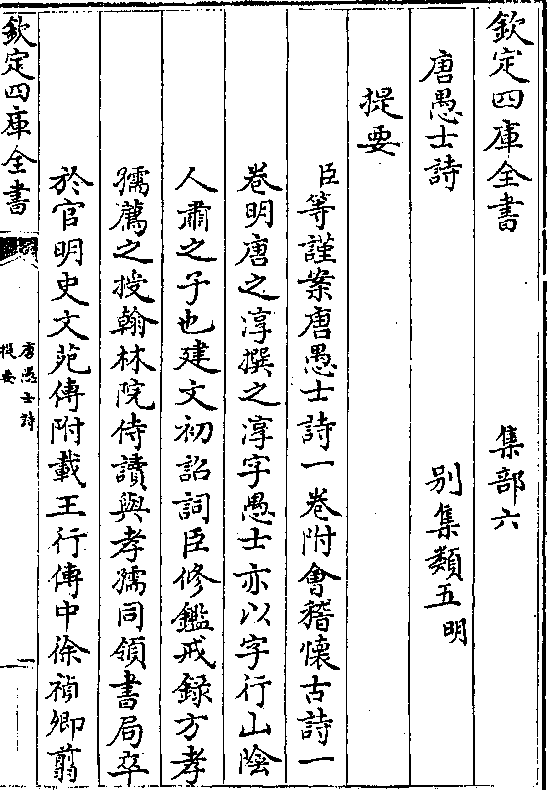 欽定四庫全書　集部六
唐愚士詩　别集類五明
提要
臣等謹案唐愚士詩一卷附會稽懷古詩一
卷明唐之淳撰之淳字愚士亦以字行山陰
人肅之子也建文初詔詞臣修鑑戒録方孝
孺薦之授翰林院侍讀與孝孺同領書局卒
於官明史文苑傳附載王行傳中徐禎卿翦
欽定四庫全書
唐愚士詩
提要
一